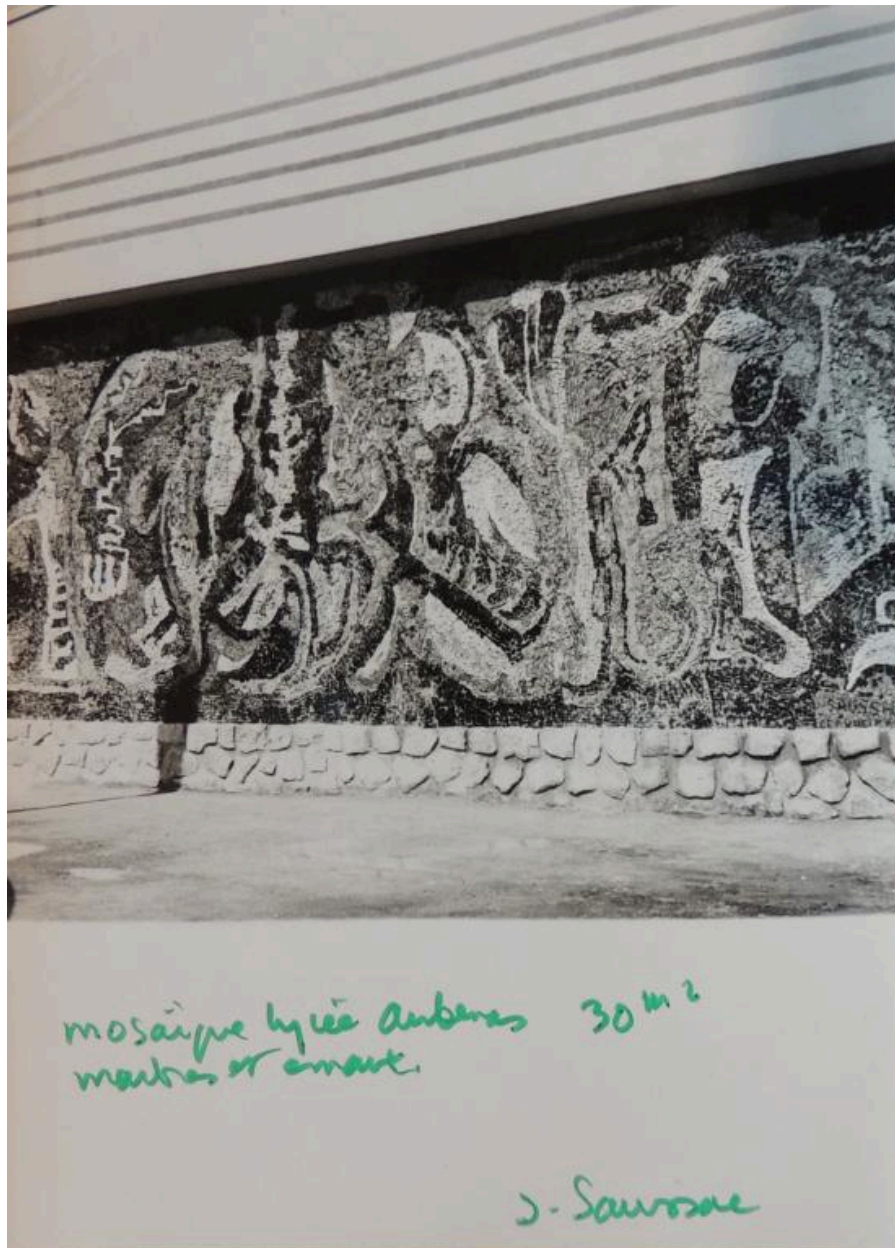 mosaïque lycée Aubenas 30 m²
marbres et émaux.
J. Saussac